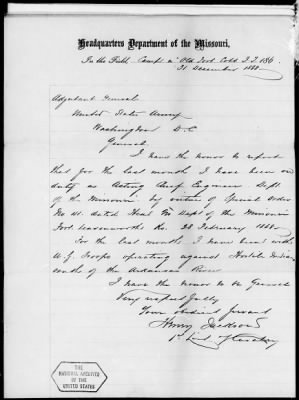 Headquarters Department of the Missouri,
In the Field Camp at Old Fort Cobb I.T.
31 December 1868
Adjutant General
United States Army
Washington D.C
General
I have the honor to report
that for the last month I have been on
duty as Acting Chief Engineer Dept
of the Missouri, by virtue of Special Order
No 41. dated Head Qrs Dept of the Missouri
Fort Leavenworth Ks. 28 February 1868
For the last month I have been with
U.S. Troops operating against Hostile Indians
south of the Arkansas River
I have the honor to be General
Very respectfully
Your obedient servant
Henry Jackson
1st Lieut 7 Cavalry
THE
NATIONAL ARCHIVES
OF THE
UNITED STATES